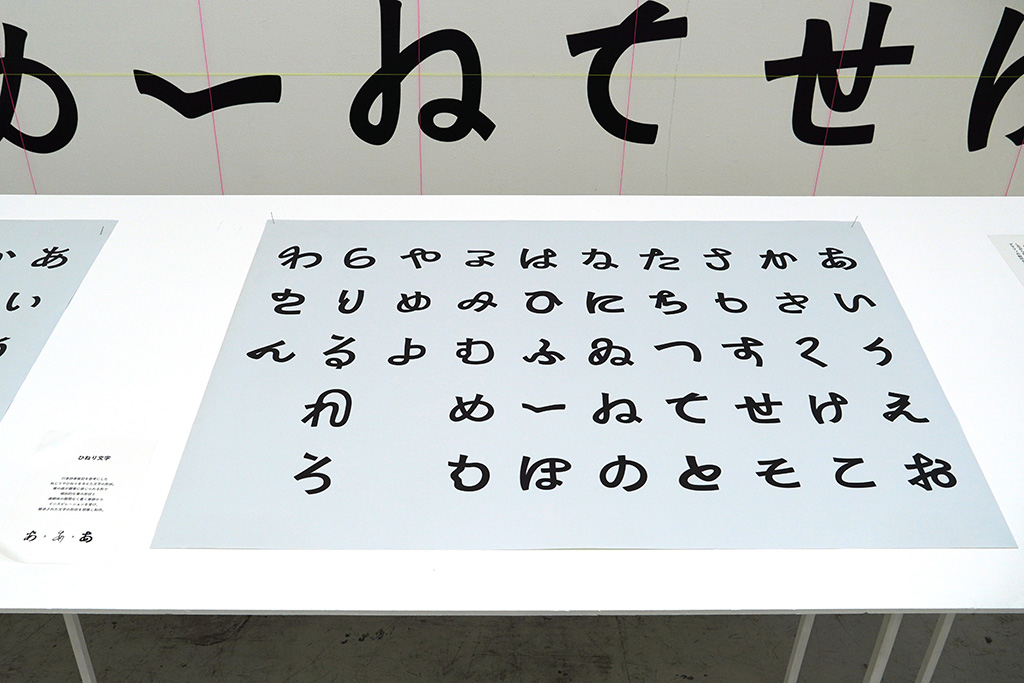 めへねてせけ
わ ら や ま は な た さ か あ
を り ゆ み ひ に ち し き い
ん る よ む ふ ぬ つ す く う
れ め へ ね て せ け え
ろ も ほ の と そ こ お
か あ
い
ひねり文字
あ・あ・あ